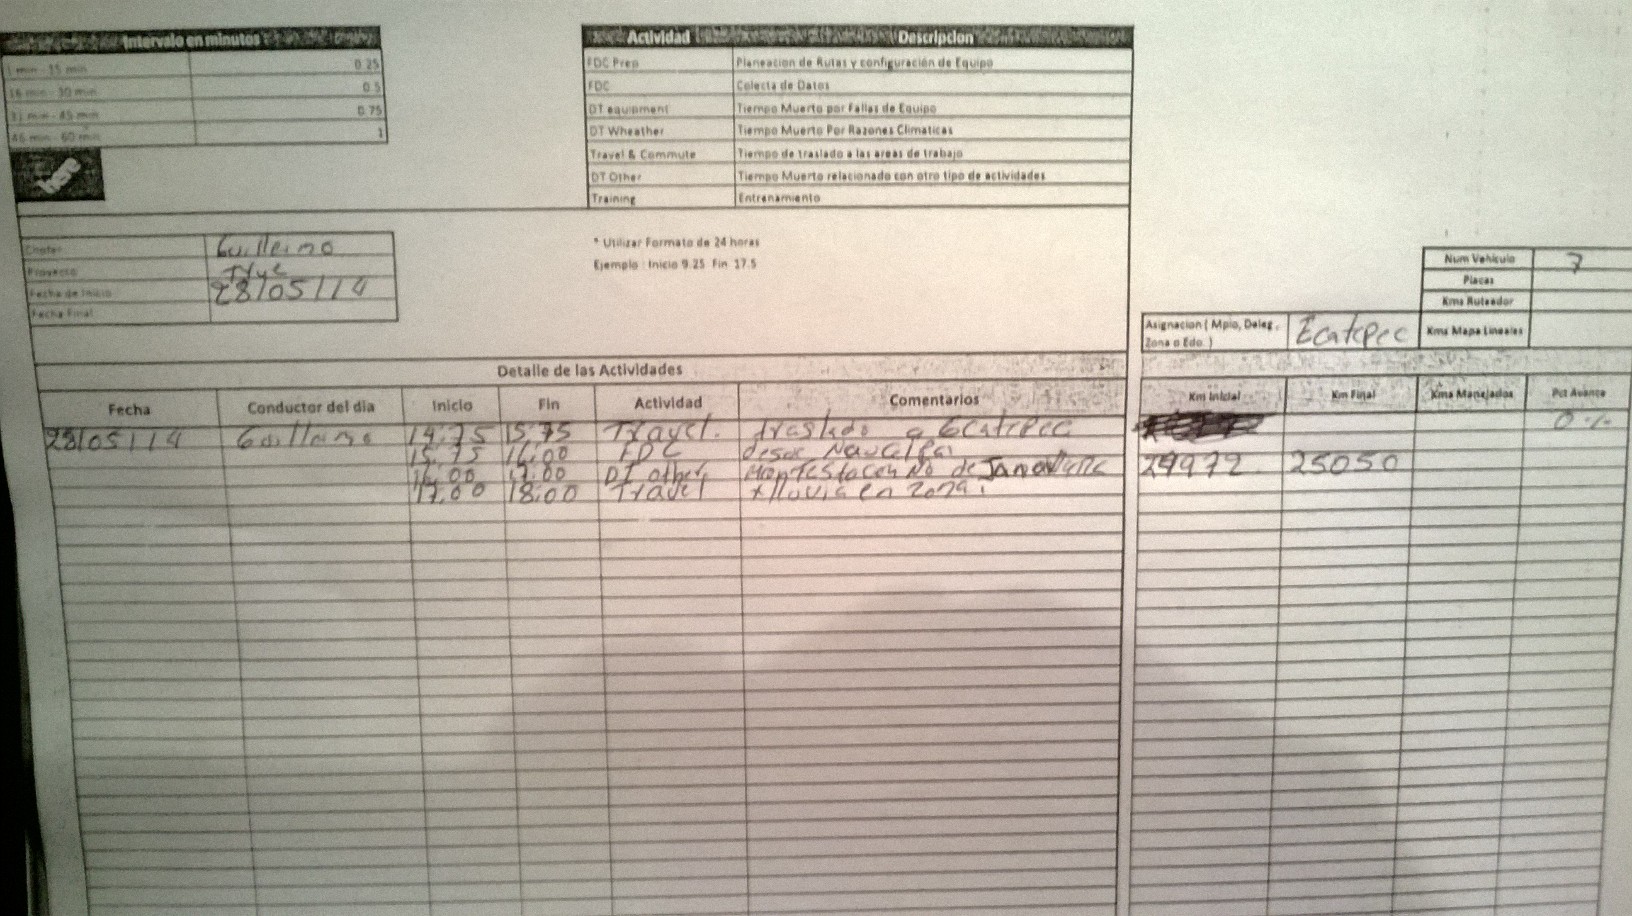 Intervalo en minutos
1 min - 15 min 0.25
16 min - 30 min 0.5
31 min - 45 min 0.75
46 min - 60 min 1
here
Actividad Descripcion
FDC Prep Planeacion de Rutas y configuración de Equipo
FDC Colecta de Datos
DT equipment Tiempo Muerto por Fallas de Equipo
DT Wheather Tiempo Muerto Por Razones Climaticas
Travel & Commute Tiempo de traslado a las areas de trabajo
DT Other Tiempo Muerto relacionado con otro tipo de actividades
Training Entrenamiento
Chofer Guillermo
Proyecto
Fecha de Inicio 28/05/14
Fecha Final
* Utilizar Formato de 24 horas
Ejemplo : Inicio 9.25 Fin 17.5
Num Vehiculo 7
Placas
Kms Ruteador
Kms Mapa Lineales
Asignacion ( Mpio, Deleg, Zona o Edo. ) Ecatepec
Detalle de las Actividades
Fecha Conductor del dia Inicio Fin Actividad Comentarios Km Inicial Km Final Kms Manejados Pct Avance
28/05/14 Guillermo 14.75 15.75 Travel. traslado a Ecatepec 0%
15.75 16:00 FDC desde Naucalpan
16:00 17:00 DT other, No de 24972 25050
17:00 18:00 Travel x lluvia en zona.